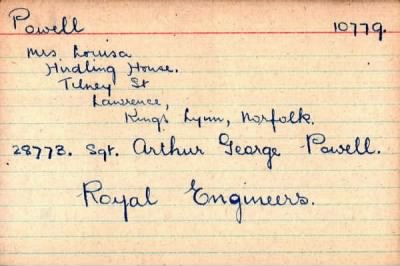 Powell 10779.
Mrs Louisa
Hindling House.
Tilney St
Lawrence,
Kings Lynn, Norfolk.
28773. Sgt. Arthur George Powell.
Royal Engineers.